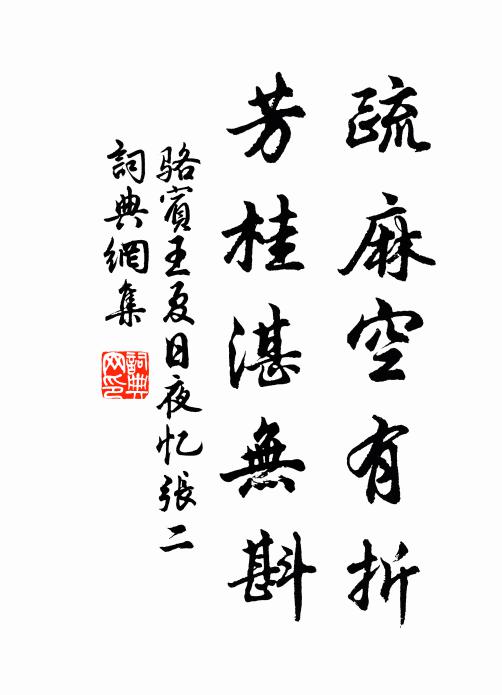 疏麻空有折
芳桂湛無斟
骆賓王夏日夜忆張二
詞典網集
詞典网印